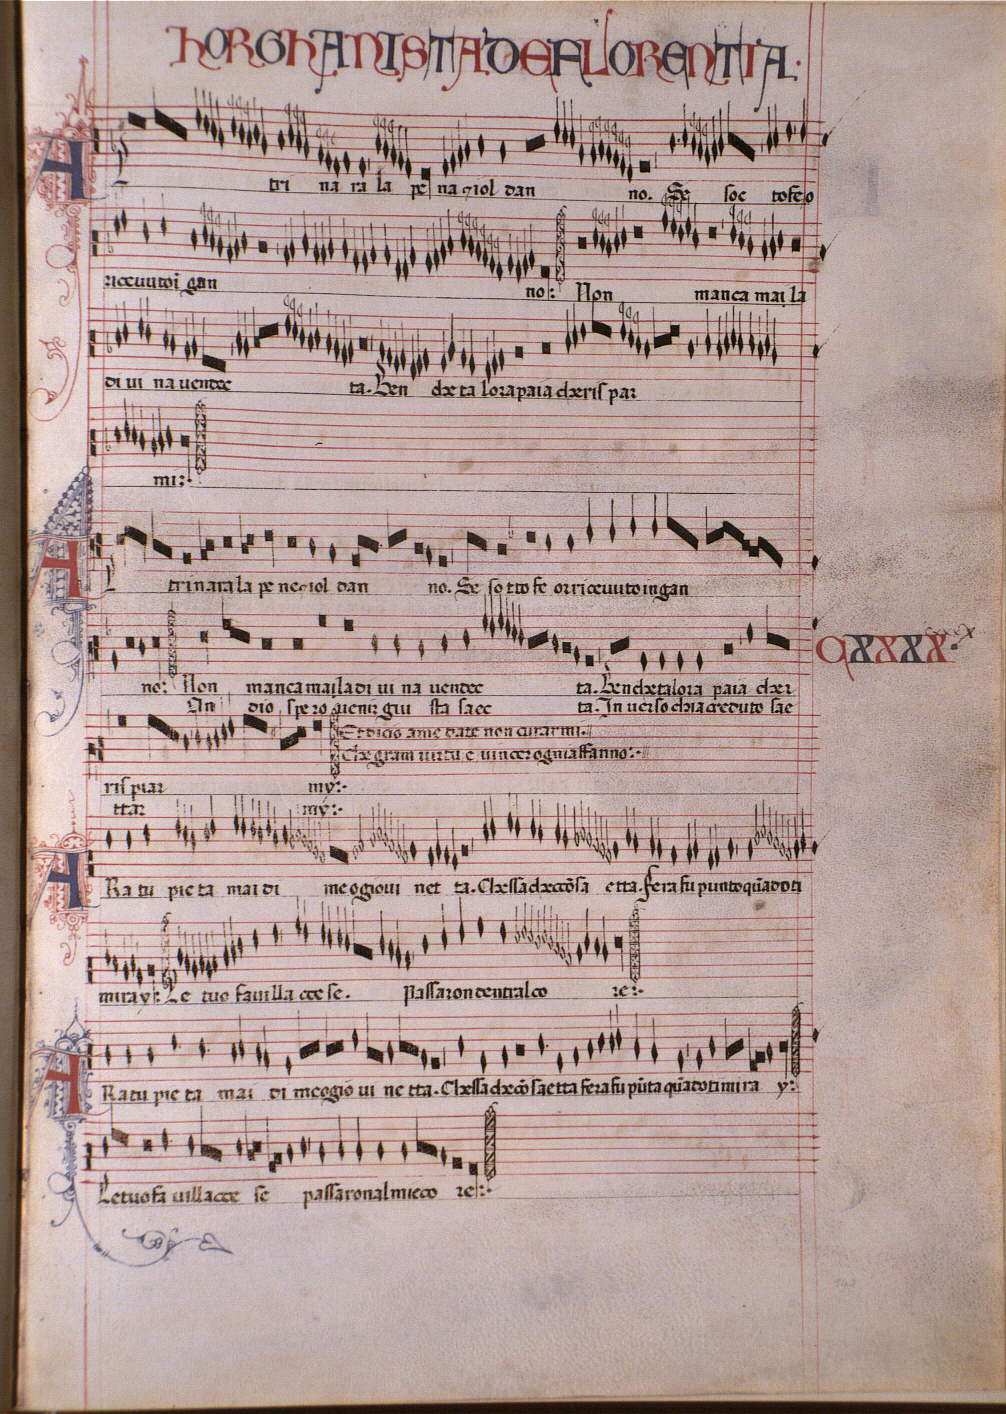 HORGHANISTA DE FLORENTIA.
A tri na ra la pe na ⁊ iol dan no. Se soc to feo
ricevuto i gan no: Non manca mai la
di vi na vendec ta. Ben che ta lora paia che ris par
mi:
A tri nara la pe ne ⁊ iol dan no. Se so tto fe or ricevuto ingan
CXXXX
no: Non manca mai la di vi na vendec ta. Ben che talora paia che r
An dio spero giu sta saec ta. In verso chi a creduto sae
Et dicio ame date non curar mi.
Che gram virtu e vincer ogni affanno:
ris piar my:
ttar my:
A Ra tu pie ta mai di me o giovi net ta. Chessa che cōsa etta. fera fu punto quādo ti
mira y: Le tuo favilla cce se. Passaron dentral co re:
A Ra tu pie ta mai di me o gio vi ne tta. Chessa che cō saetta fera fu pūta quādo ti mi ra y:
Le tuo fa villa cce se passaron al mie co re: